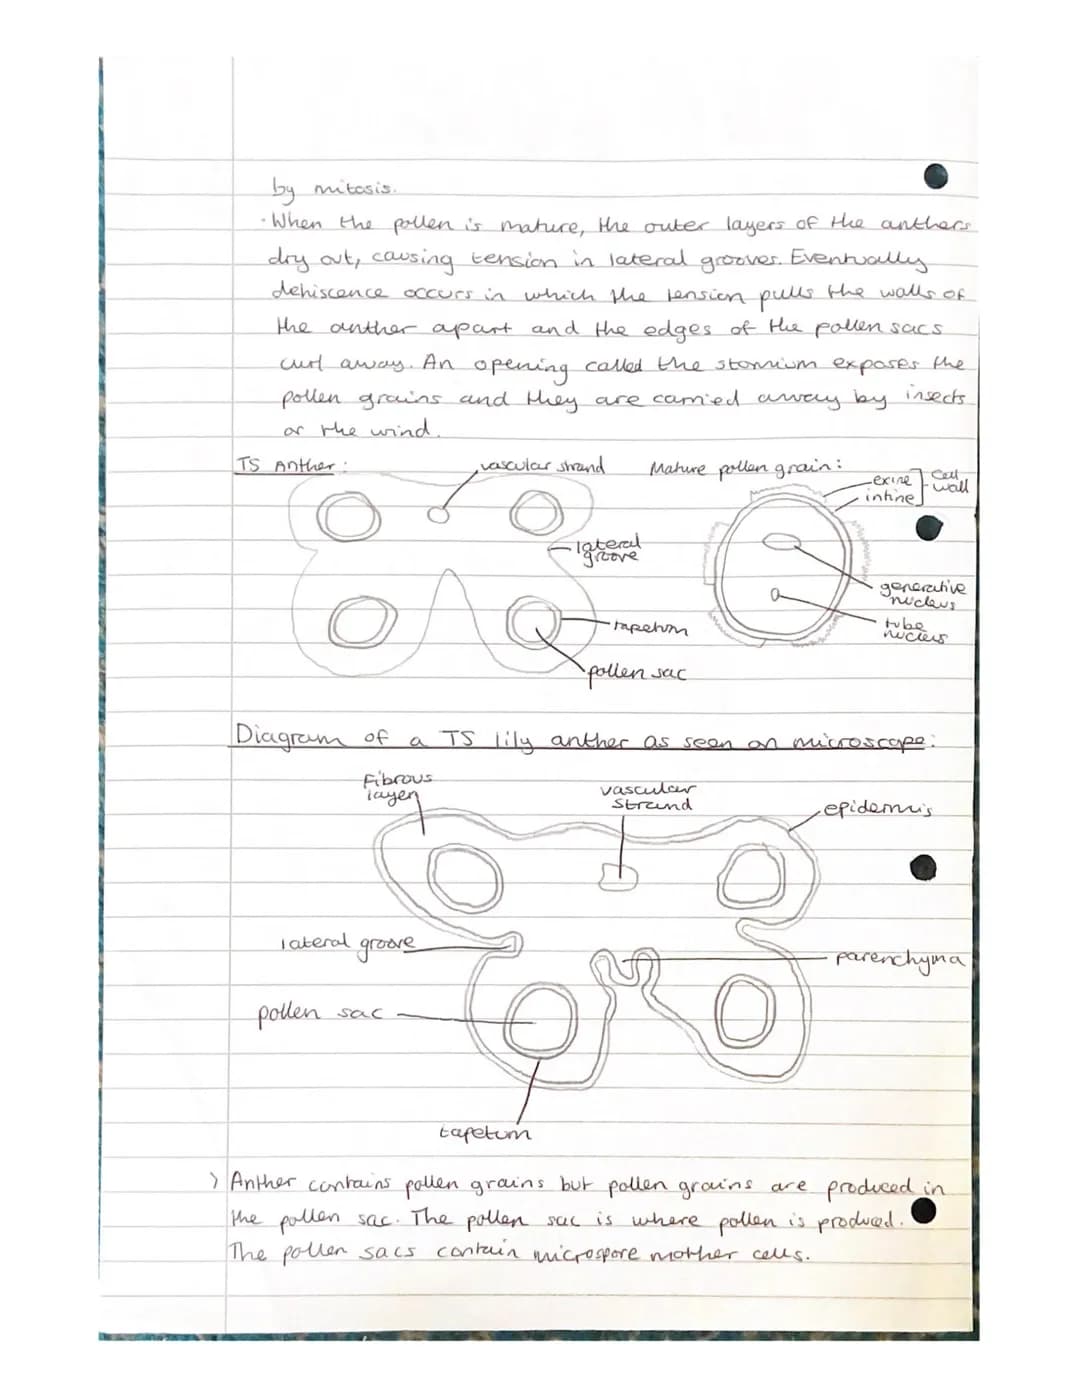 by mitosis.
· When the pollen is mature, the outer layers of the anthers
dry out, causing tension in lateral grooves. Eventually
dehiscence occurs in which the tension pulls the walls of
the anther apart and the edges of the pollen sacs
curl away. An opening called the stomium exposes the
pollen grains and they are carried away by insects
or the wind.
TS Anther:
vascular strand
Mature pollen grain:
exine
intine
cell
wall
lateral
groove
generative
nucleus
tapetum
tube
nucleus
pollen sac
Diagram of a TS lily anther as seen on microscope:
Fibrous
layer
vascular
strand
epidermis
lateral groove
parenchyma
pollen sac
tapetum
> Anther contains pollen grains but pollen grains are produced in
the pollen sac. The pollen sac is where pollen is produced.
The pollen sacs contain microspore mother cells.